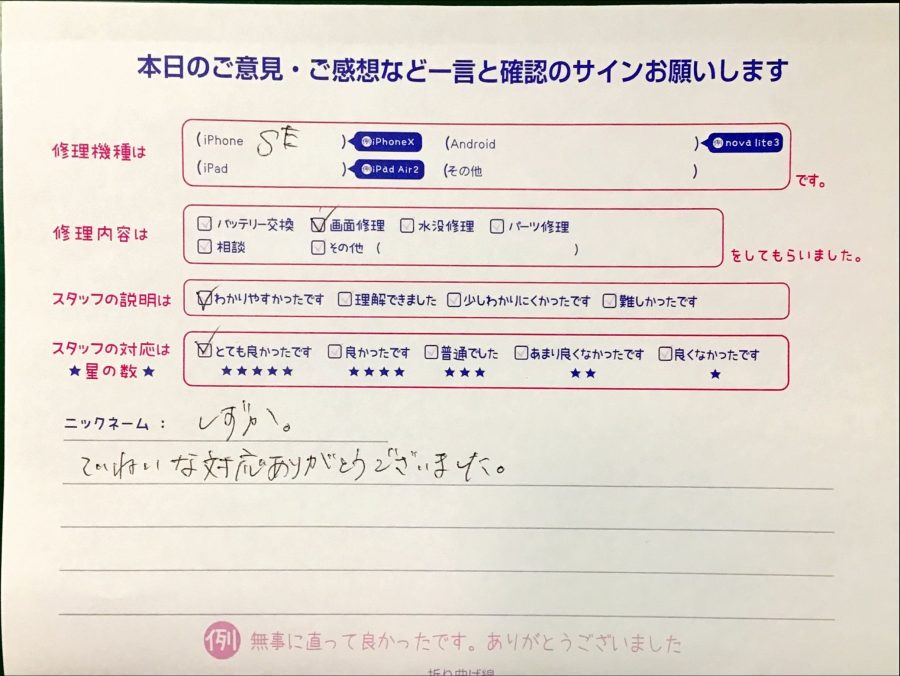 本日のご意見・ご感想など一言と確認のサインお願いします
修理機種は (iPhone SE ) 例iPhoneX (Android ) 例nova lite3
(iPad ) 例iPad Air2 (その他 ) です。
修理内容は バッテリー交換 画面修理 水没修理 パーツ修理
相談 その他 ( ) をしてもらいました。
スタッフの説明は わかりやすかったです 理解できました 少しわかりにくかったです 難しかったです
スタッフの対応は とても良かったです 良かったです 普通でした あまり良くなかったです 良くなかったです
★星の数★ ★★★★★ ★★★★ ★★★ ★★ ★
ニックネーム: しずか。
ていねいな対応ありがとうございました。
例 無事に直って良かったです。ありがとうございました
折り曲げ線